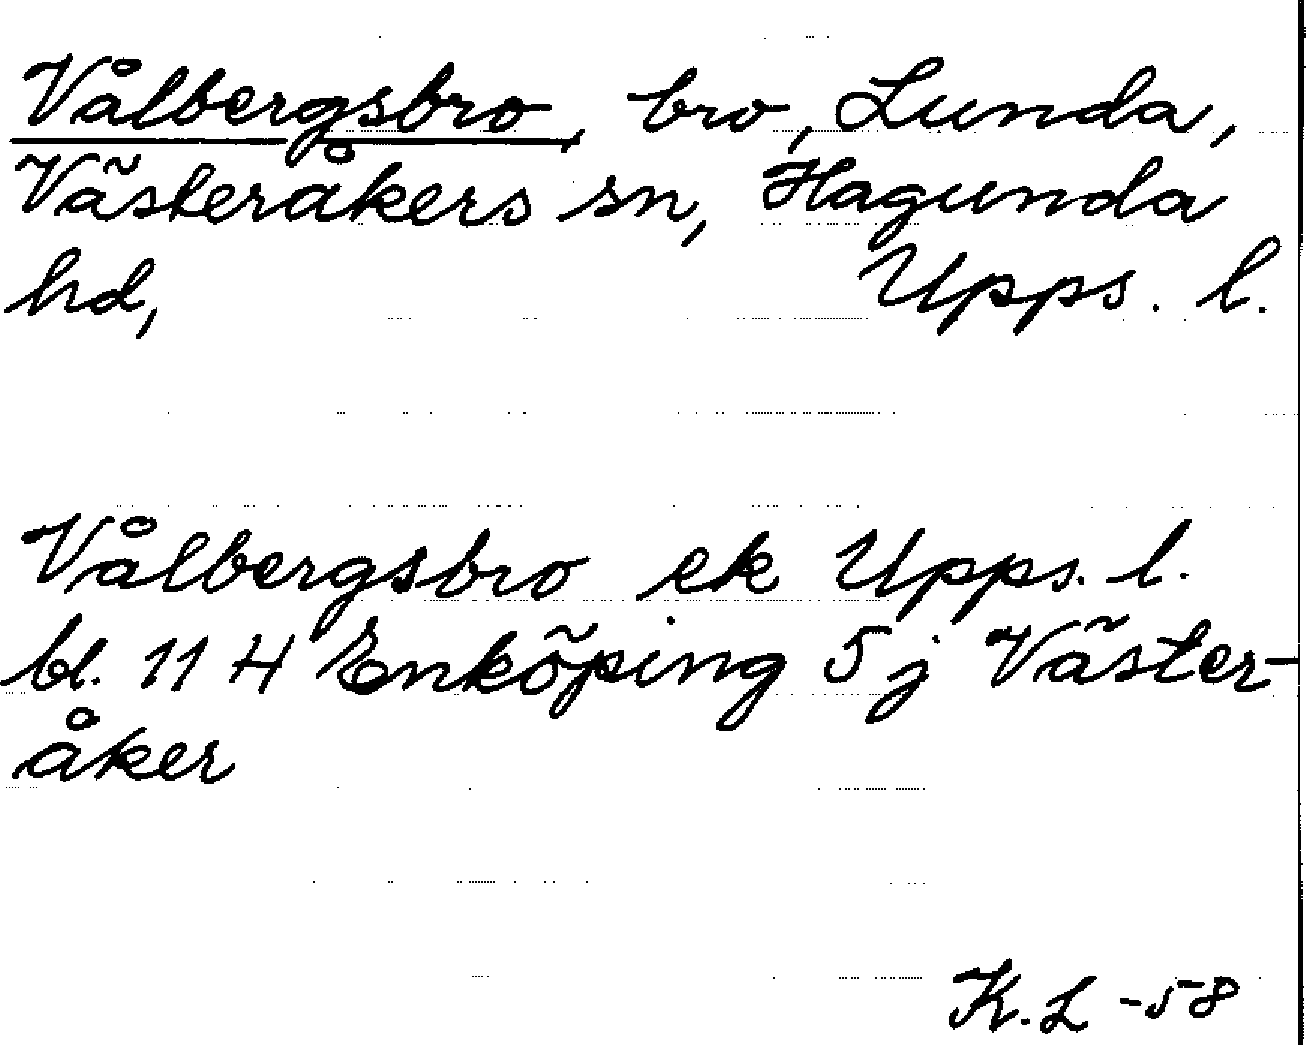 Vålbergsbro, bro, Lunda,
Västeråkers sn, Hagunda
hd, Upps. l.
Vålbergsbro ek Upps. l.
bl. 11 H Enköping 5 j Väster-
åker
K.L -58